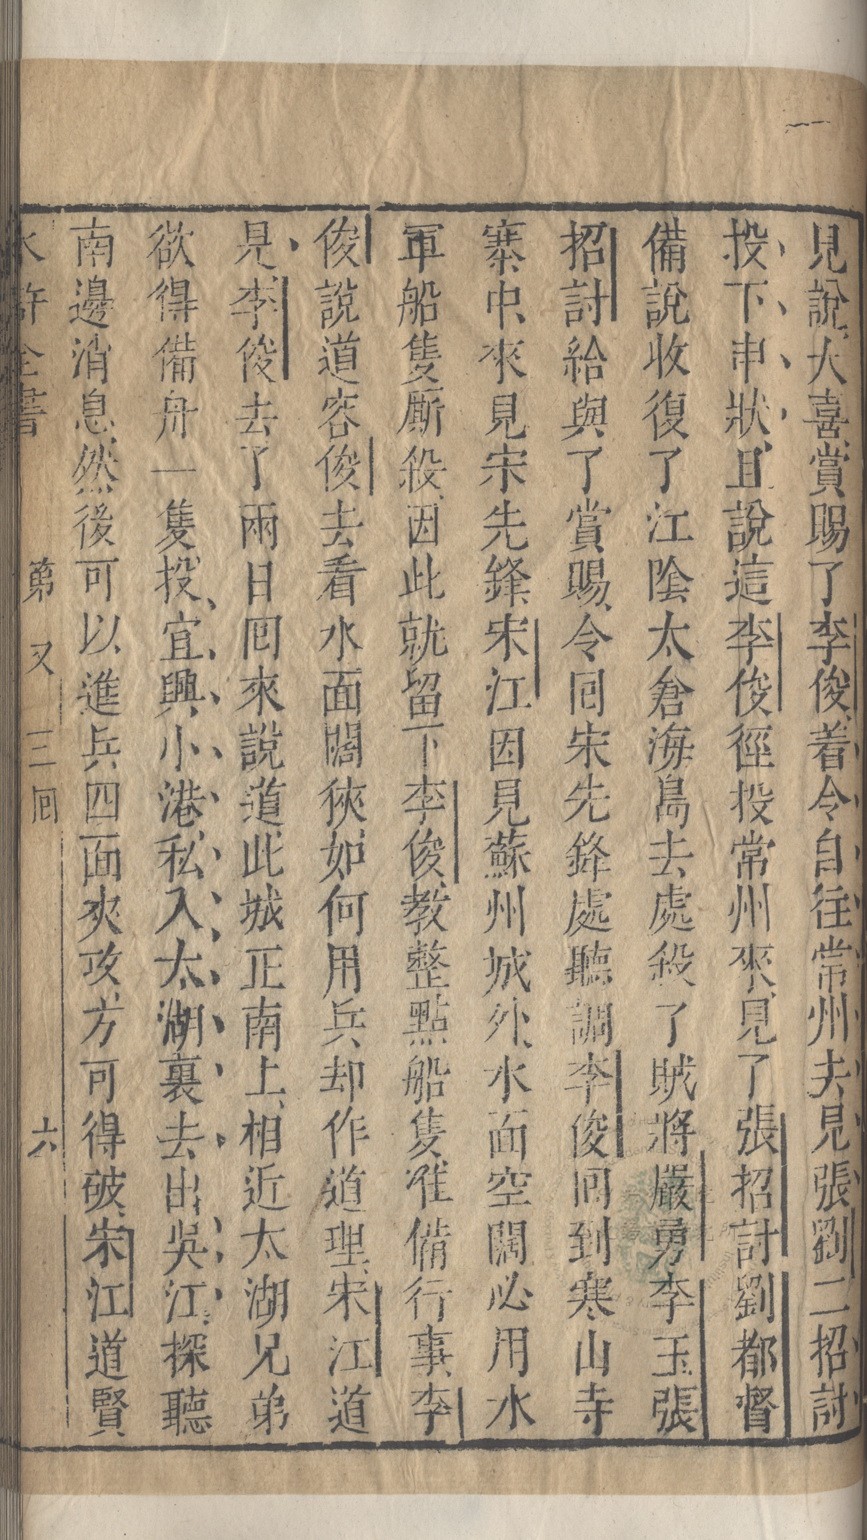 見說大喜賞賜了李俊着令自往常州去見張劉二招討
投下申狀且說這李俊徑投常州來見了張招討劉都督
備說收復了江陰太倉海島去處殺了賊將嚴勇李玉張
招討給與了賞賜令囘宋先鋒處聽調李俊囘到寒山寺
寨中來見宋先鋒宋江因見蘇州城外水面空闊必用水
軍船隻厮殺因此就留下李俊教整點船隻准備行事李
俊說道容俊去看水面闊狹如何用兵却作道理宋江道
是李俊去了兩日囘來說道此城正南上相近太湖兄弟
欲得備舟一隻投宜興小港私入太湖裏去出吳江探聽
南邊消息然後可以進兵四面夾攻方可得破宋江道賢
水滸全書 第又三囘 六